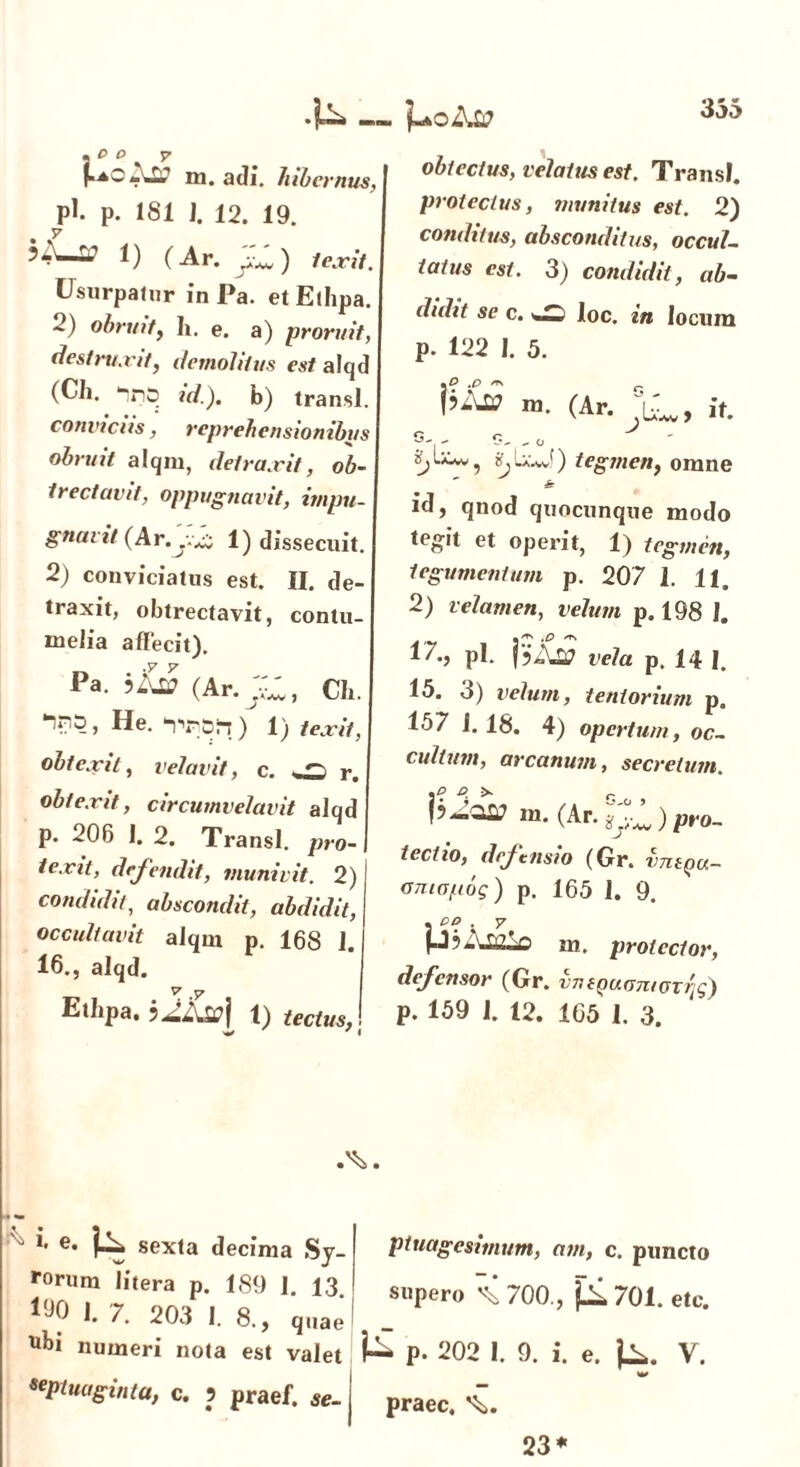 .ܥܐ — ܣܬܘܝܐ 355
ܣܬܘܝܐ m. adi. hibernus,
pl. p. 181 l. 12. 19.
ܣܬܪ 1) (Ar. ستر) texit.
Usurpatur in Pa. et Ethpa.
2) obruit, h. e. a) proruit,
destruxit, demolitus est alqd
(Ch. סתר id.). b) transl.
conviciis, reprehensionibus
obruit alqm, detraxit, ob-
trectavit, oppugnavit, impu-
gnavit (Ar. شتر 1) dissecuit.
2) conviciatus est. II. de-
traxit, obtrectavit, contu-
melia affecit).
Pa. ܣܬܪ (Ar. ستر, Ch.
סתר, He. הסתיר) 1) texit,
obtexit, velavit, c. ܒ r.
obtexit, circumvelavit alqd
p. 206 l. 2. Transl. pro-
texit, defendit, munivit. 2)
condidit, abscondit, abdidit,
occultavit alqm p. 168 l.
16., alqd.
Ethpa. ܐܣܬܬܪ 1) tectus,
obtectus, velatus est. Transl.
protectus, munitus est. 2)
conditus, absconditus, occul-
tatus est. 3) condidit, ab-
didit se c. ܒ loc. in locum
p. 122 l. 5.
ܣܬܪܐ m. (Ar. ستار, it.
ستارة, استارة) tegmen, omne
id, qnod quocunque modo
tegit et operit, 1) tegmen,
tegumentum p. 207 l. 11.
2) velamen, velum p. 198 l.
17., pl. ܣܬܪܐ vela p. 14 l.
15. 3) velum, tentorium p.
157 l. 18. 4) opertum, oc-
cultum, arcanum, secretum.
ܣܘܬܪܐ m. (Ar. سترة) pro-
tectio, defensio (Gr. ὑπερα-
σπισμός) p. 165 l. 9.
ܡܣܬܪܢܐ m. protector,
defensor (Gr. ὑπερασπιστής)
p. 159 l. 12. 165 l. 3.
.ܥ.
ܥ i. e. ܥܐ sexta decima Sy-
rorum litera p. 189 l. 13.
190 l. 7. 203 l. 8., quae
ubi numeri nota est valet
septuaginta, c. ܕ praef. se-
ptuagesimum, am, c. puncto
supero ܥ 700., ܥܐ 701. etc.
ܥܐ p. 202 l. 9. i. e. ܥܐ. V.
praec. ܥ.
23*